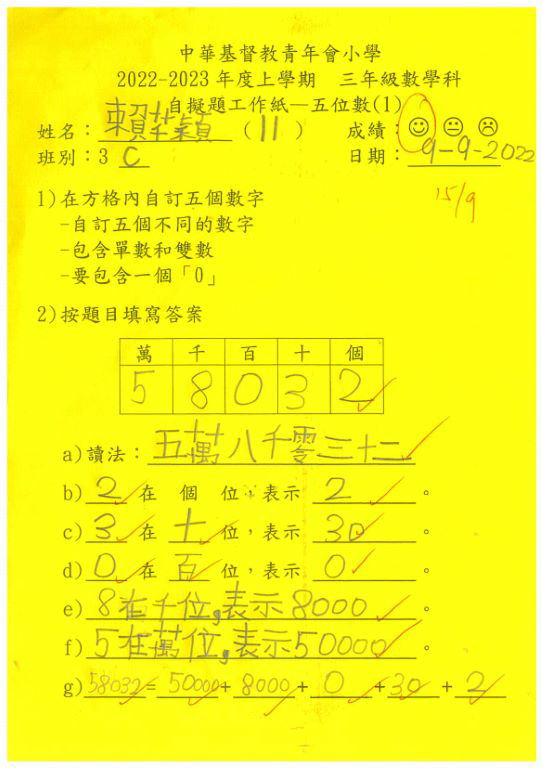 中華基督教青年會小學
2022-2023年度上學期 三年級數學科
自擬題工作紙—五位數(1)
姓名：賴芊穎 (11) 成績：
班別：3 C 日期：9-9-2022
15/9
1)在方格內自訂五個數字
-自訂五個不同的數字
-包含單數和雙數
-要包含一個「0」
2)按題目填寫答案
萬 千 百 十 個
5 8 0 3 2
a)讀法：五萬八千零三十二
b) 2 在 個 位，表示 2 。
c) 3 在 十 位，表示 30 。
d) 0 在 百 位，表示 0 。
e) 8在千位,表示8000 。
f) 5在萬位,表示50000 。
g) 58032= 50000+ 8000 + 0 +30 + 2